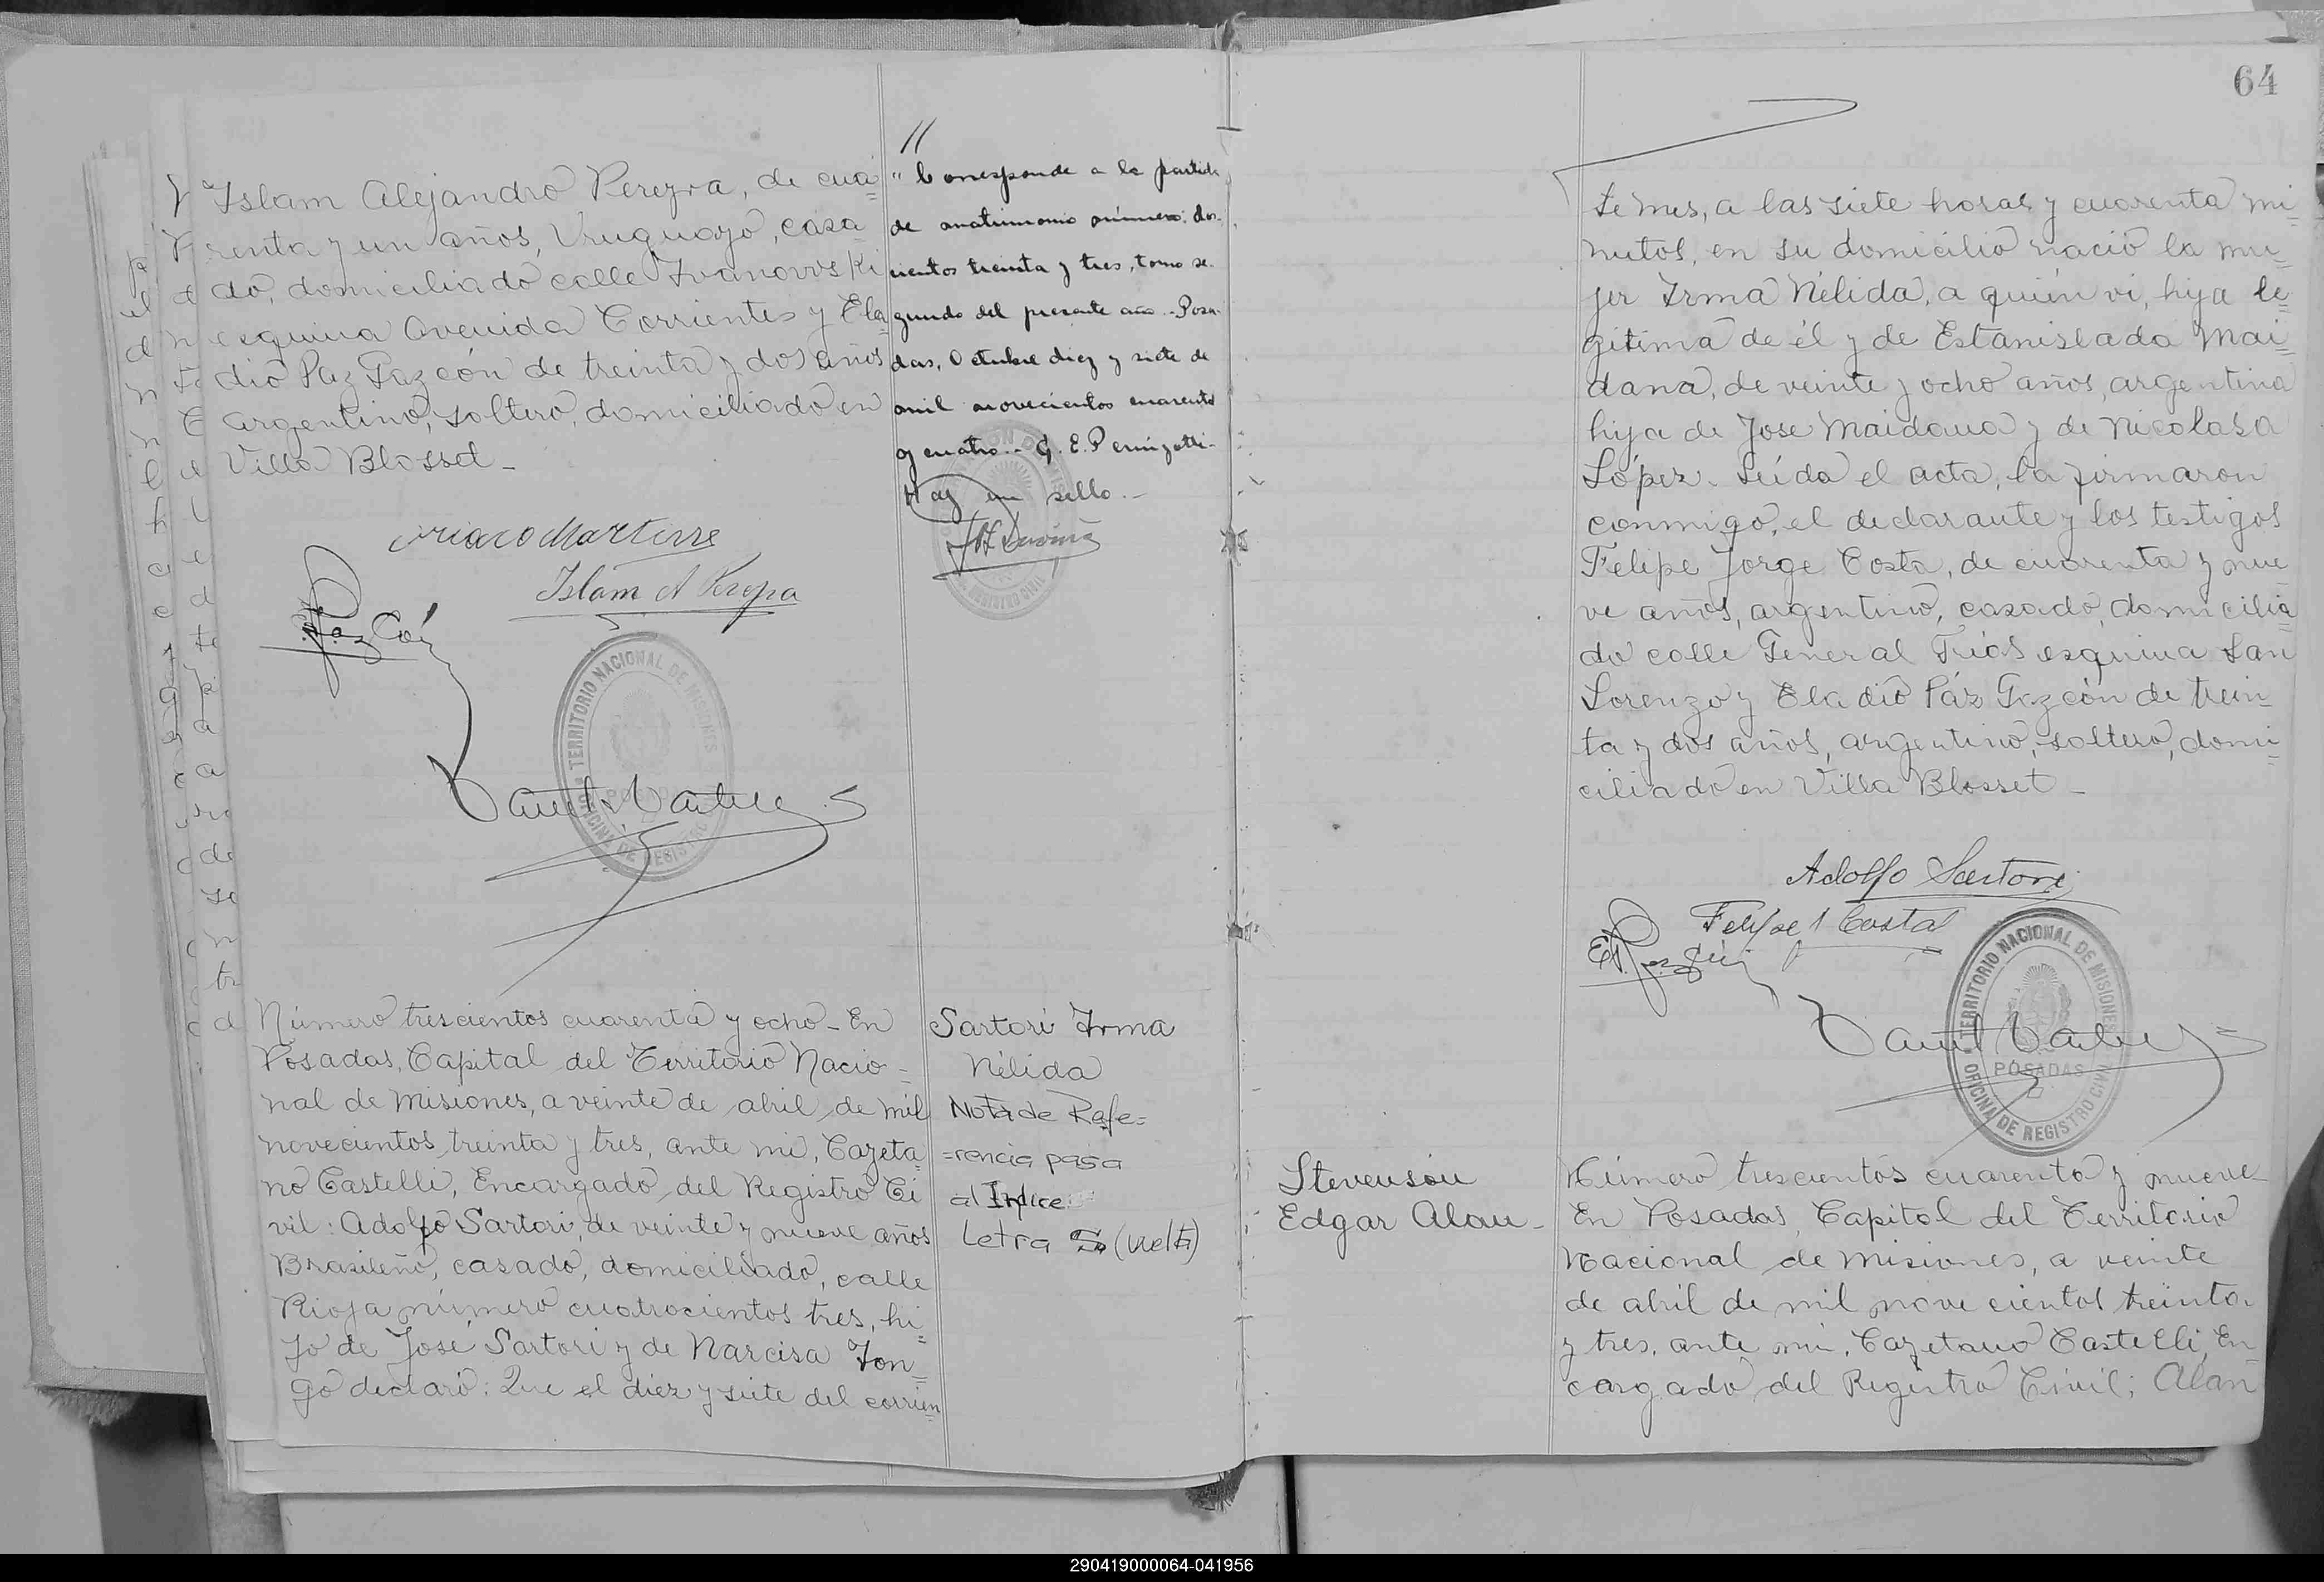 Islam Alejandro Pereyra, de cua=
renta y un años, Uruguayo, casa=
do, domiciliado calle Ivanovski
esquina Avenida Corrientes y Ela=
dio Paz Gazcón de treinta y dos años
argentino, soltero, domiciliado en
Villa Blosset_
Islam A Pereyra
TERRITORIO NACIONAL DE MISIONES
POSADAS
OFICINA DE REGISTRO CIVIL
"Corresponde a la partida
de matrimonio número: dos-
cientos treinta y tres, tomo se-
gundo del presente año.- Posa-
das, Octubre diez y siete de
mil novecientos cuarenta
y cuatro.- G. E.
Hay un sello.-
Número trescientos cuarenta y ocho_En
Posadas, Capital del Territorio Nacio=
nal de Misiones, a veinte de abril de mil
novecientos treinta y tres, ante mi, Cayeta=
no Castelli, Encargado del Registro Ci
vil: Adolfo Sartori, de veinte y nueve años
Brasileño, casado, domiciliado, calle
Rioja número cuatrocientos tres, hi=
jo de José Sartori y de Narcisa Ton=
go declaró: Que el diez y siete del corrien=
Sartori Irma
Nélida
Nota de Refe=
=rencia pasa
al Indice
Letra S (vuelta)
64
te mes, a las siete horas y cuarenta mi=
nutos, en su domicilio nació la mu=
jer Irma Nélida, a quién vi, hija le=
gitima de él y de Estanislada Mai=
dana, de veinte y ocho años, argentina
hija de Jose Maidana y de Nicolasa
López. Leída el acta, la firmaron
conmigo, el declarante y los testigos
Felipe Jorge Costa, de cuarenta y nue=
ve años, argentino, casado, domicilia=
do calle General Frias esquina San
Lorenzo y Eladio Páz Gazcón de trein=
ta y dos años, argentino, soltero, domi=
ciliado en Villa Blosset_
Adolfo Sartori
Felipe J Costa
TERRITORIO NACIONAL DE MISIONES
POSADAS
OFICINA DE REGISTRO CIVIL
Stevenson
Edgar Alan_
Número trescientos cuarenta y nueve
En Posadas, Capital del Territorio
Nacional de Misiones, a veinte
de abril de mil novecientos treinta
y tres, ante mi, Cayetano Castelli, En=
cargado del Registro Civil; Alan
290419000064-041956